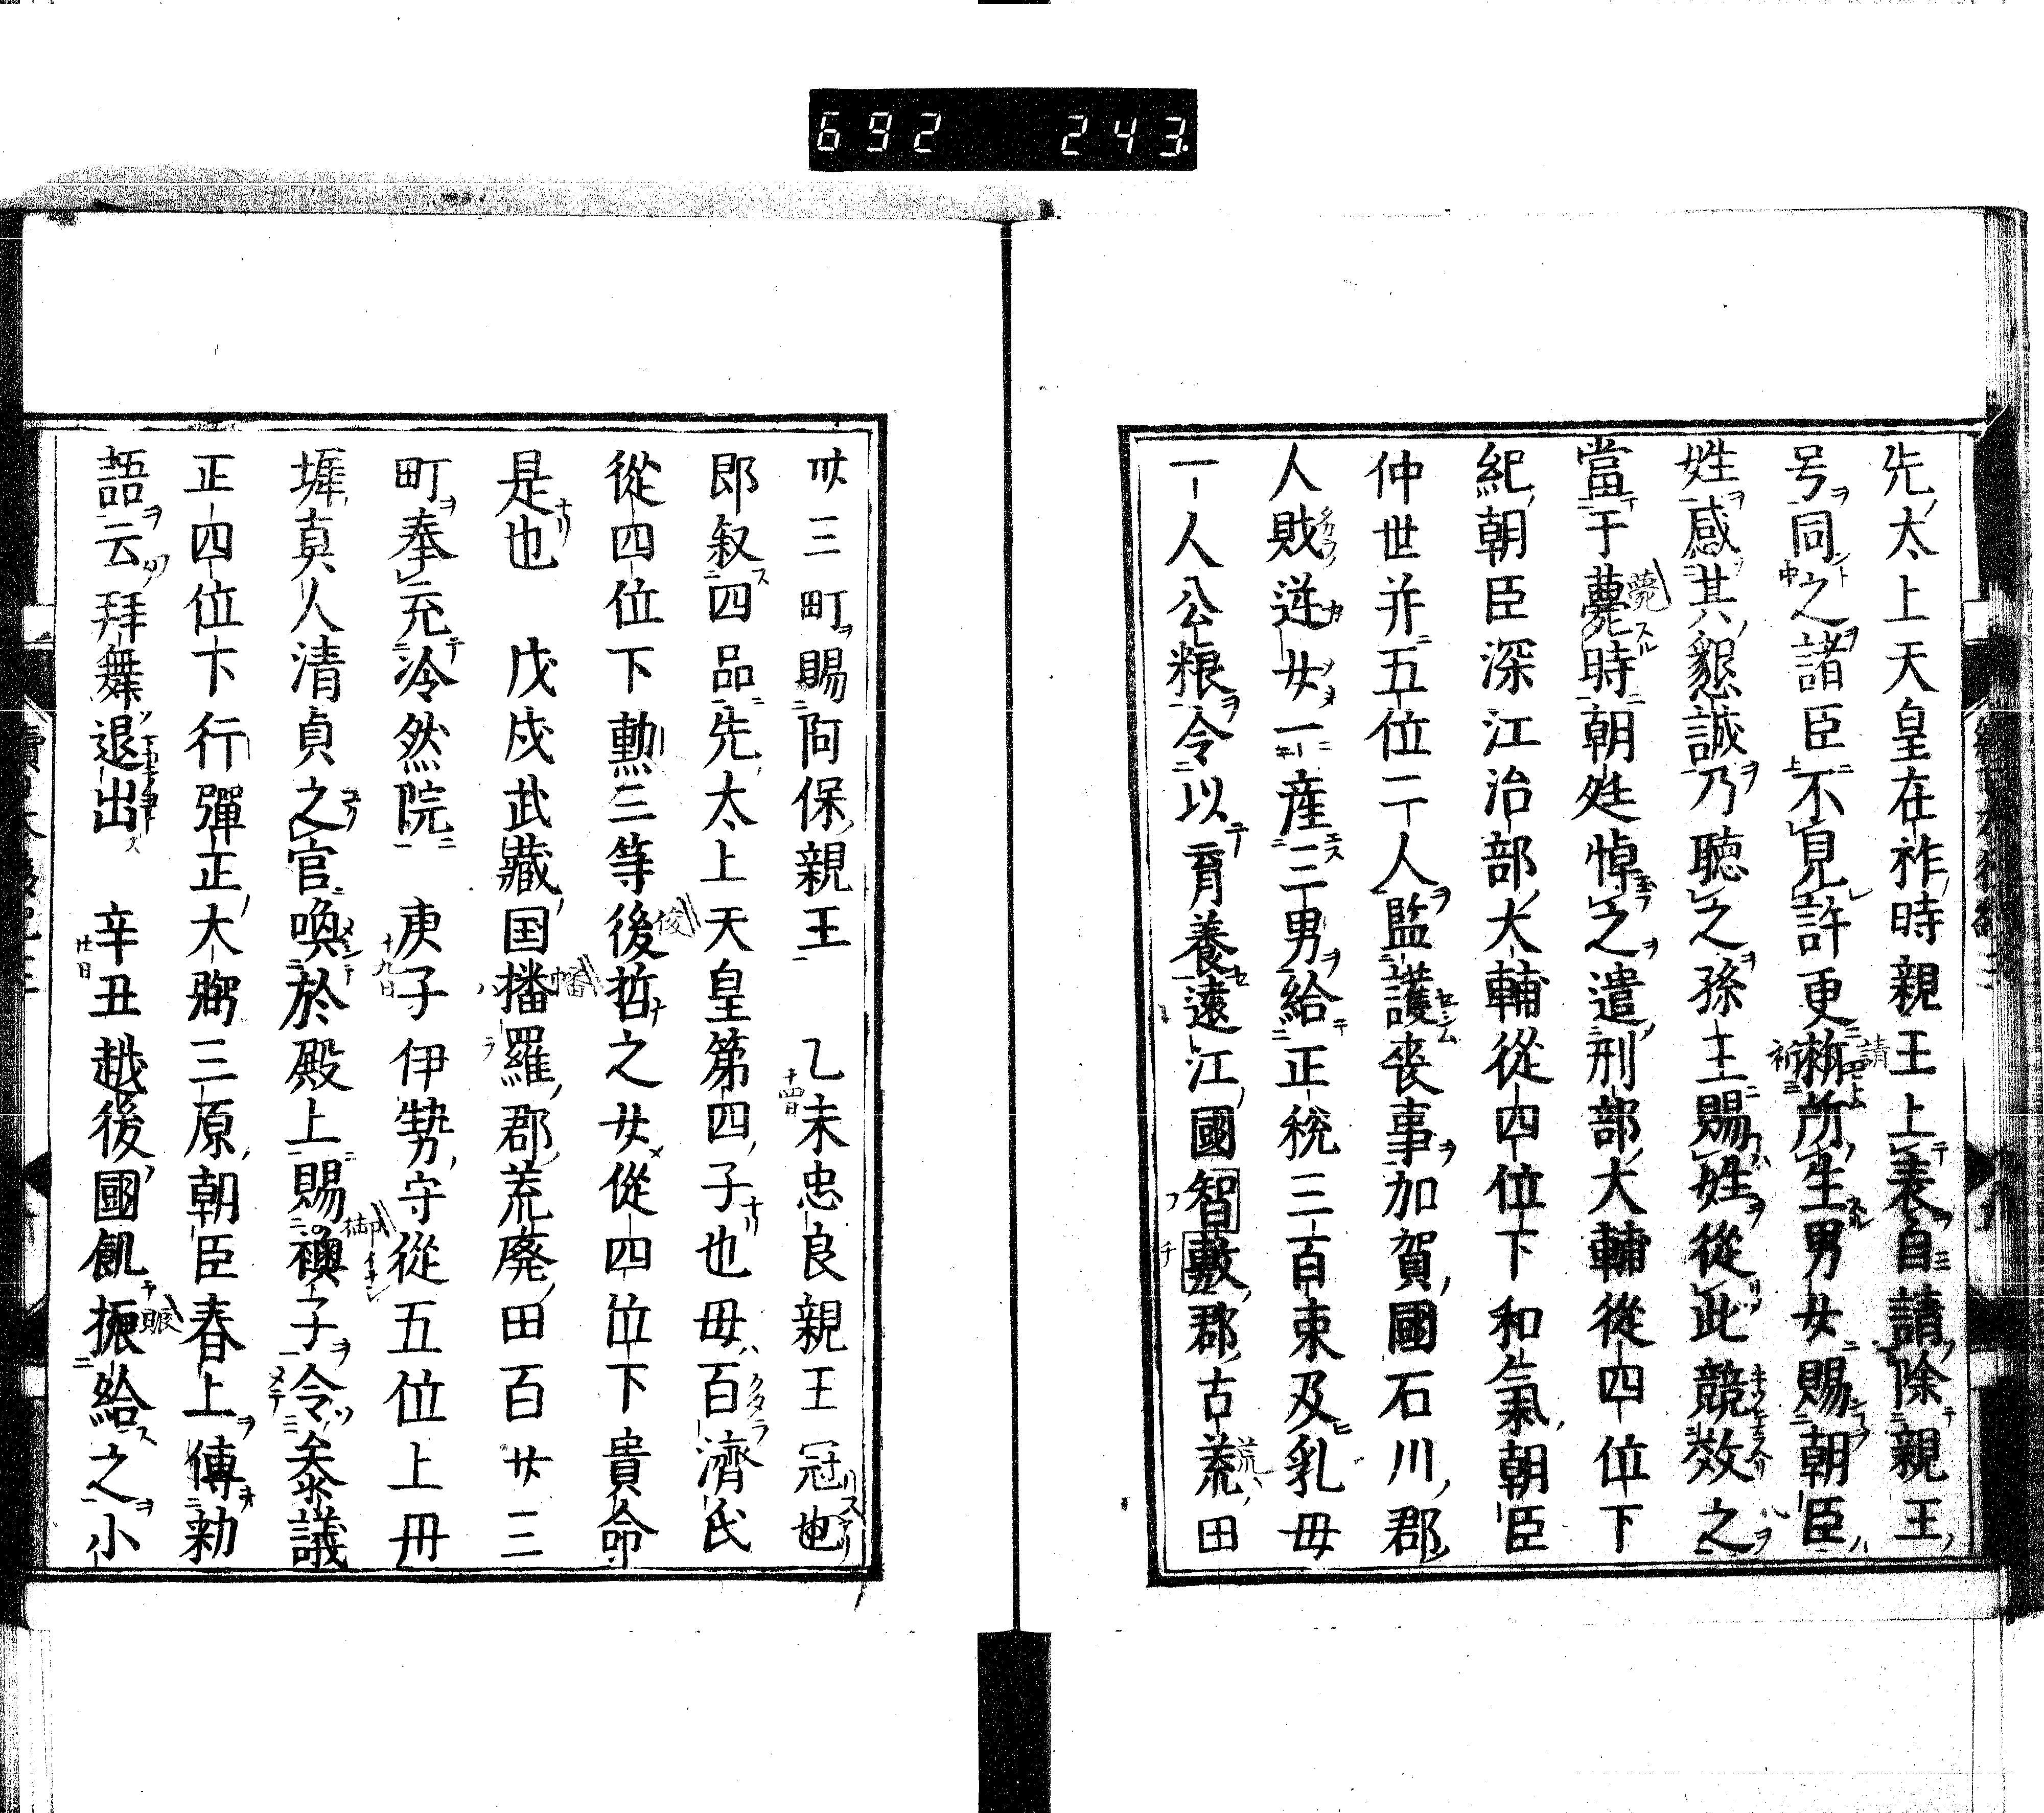 692 243
先太上天皇在祚時親王上表自請除親王
号同之諸臣不見許更祈所生男女賜朝臣
姓感其懇誠乃聴之孫王賜姓從此競效之
當于薨時朝廷悼之遣刑部大輔從四位下
紀朝臣深江治部大輔從四位下和氣朝臣
仲世并五位二人監護喪事加賀國石川郡
人財逆女一産三男給正税三百束及乳母
一人公粮令以育養遠江國智敷郡古荒田
卌三町賜阿保親王 乙未忠良親王冠也
即叙四品先太上天皇第四子也母百濟氏
從四位下勲三等後哲之女從四位下貴命
是也 戊戌武藏国播羅郡荒廃田百廿三
町奉充冷然院 庚子伊勢守從五位上丹
墀真人清貞之官喚於殿上賜襖子令參議
正四位下行彈正大弼三原朝臣春上傳勅
語云拜舞退出 辛丑越後國飢振給之小